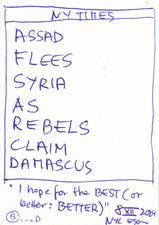 NY TIMES
ASSAD
FLEES
SYRIA
AS
REBELS
CLAIM
DAMASCUS
"I hope for the BEST (or
better: BETTER)" 8 XII 2024
B...D NYC